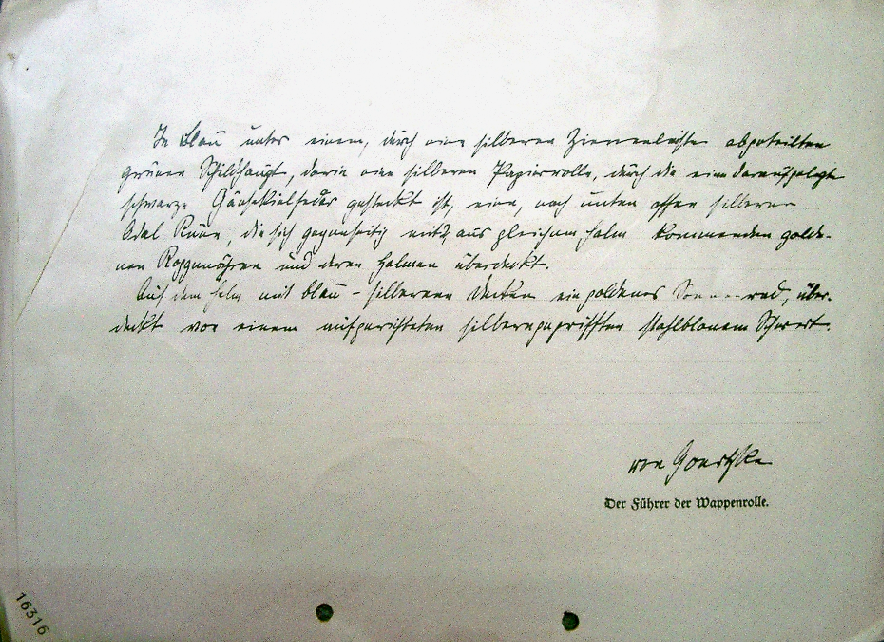 In Blau unter einem, durch eine silberne Zinnenleiste abgeteilten
grünen Schildhaupt, darin eine silberne Papierrolle, durch die eine daraufgelegte
schwarze Gänsekielfeder gesteckt ist, eine, nach unten offen silberne
Odal Rune, die sich gegenseitig mit 2 aus gleichem Halm kommenden golde-
nen Roggenähren und deren Halmen überdeckt.
Auf dem Helm mit blau-silbernen Decken ein goldenes Sonnenrad, über-
deckt von einem aufgerichteten silberngegrifften stahlblauem Schwert.
von Goertzke
Der Führer der Wappenrolle.
16316